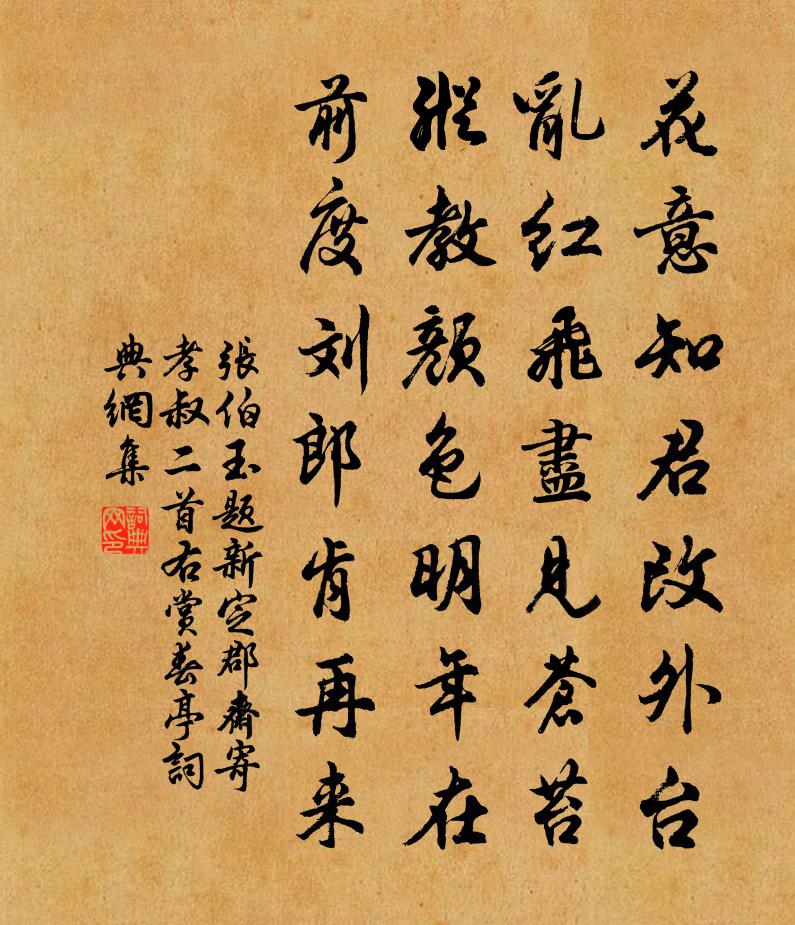 花意知君改外台
亂红飛盡見蒼苔
縱教顏色明年在
前度刘郎肯再来
張伯玉題新定郡齋寄
孝叔二首右賞春亭詞
典網集
詞典
网印